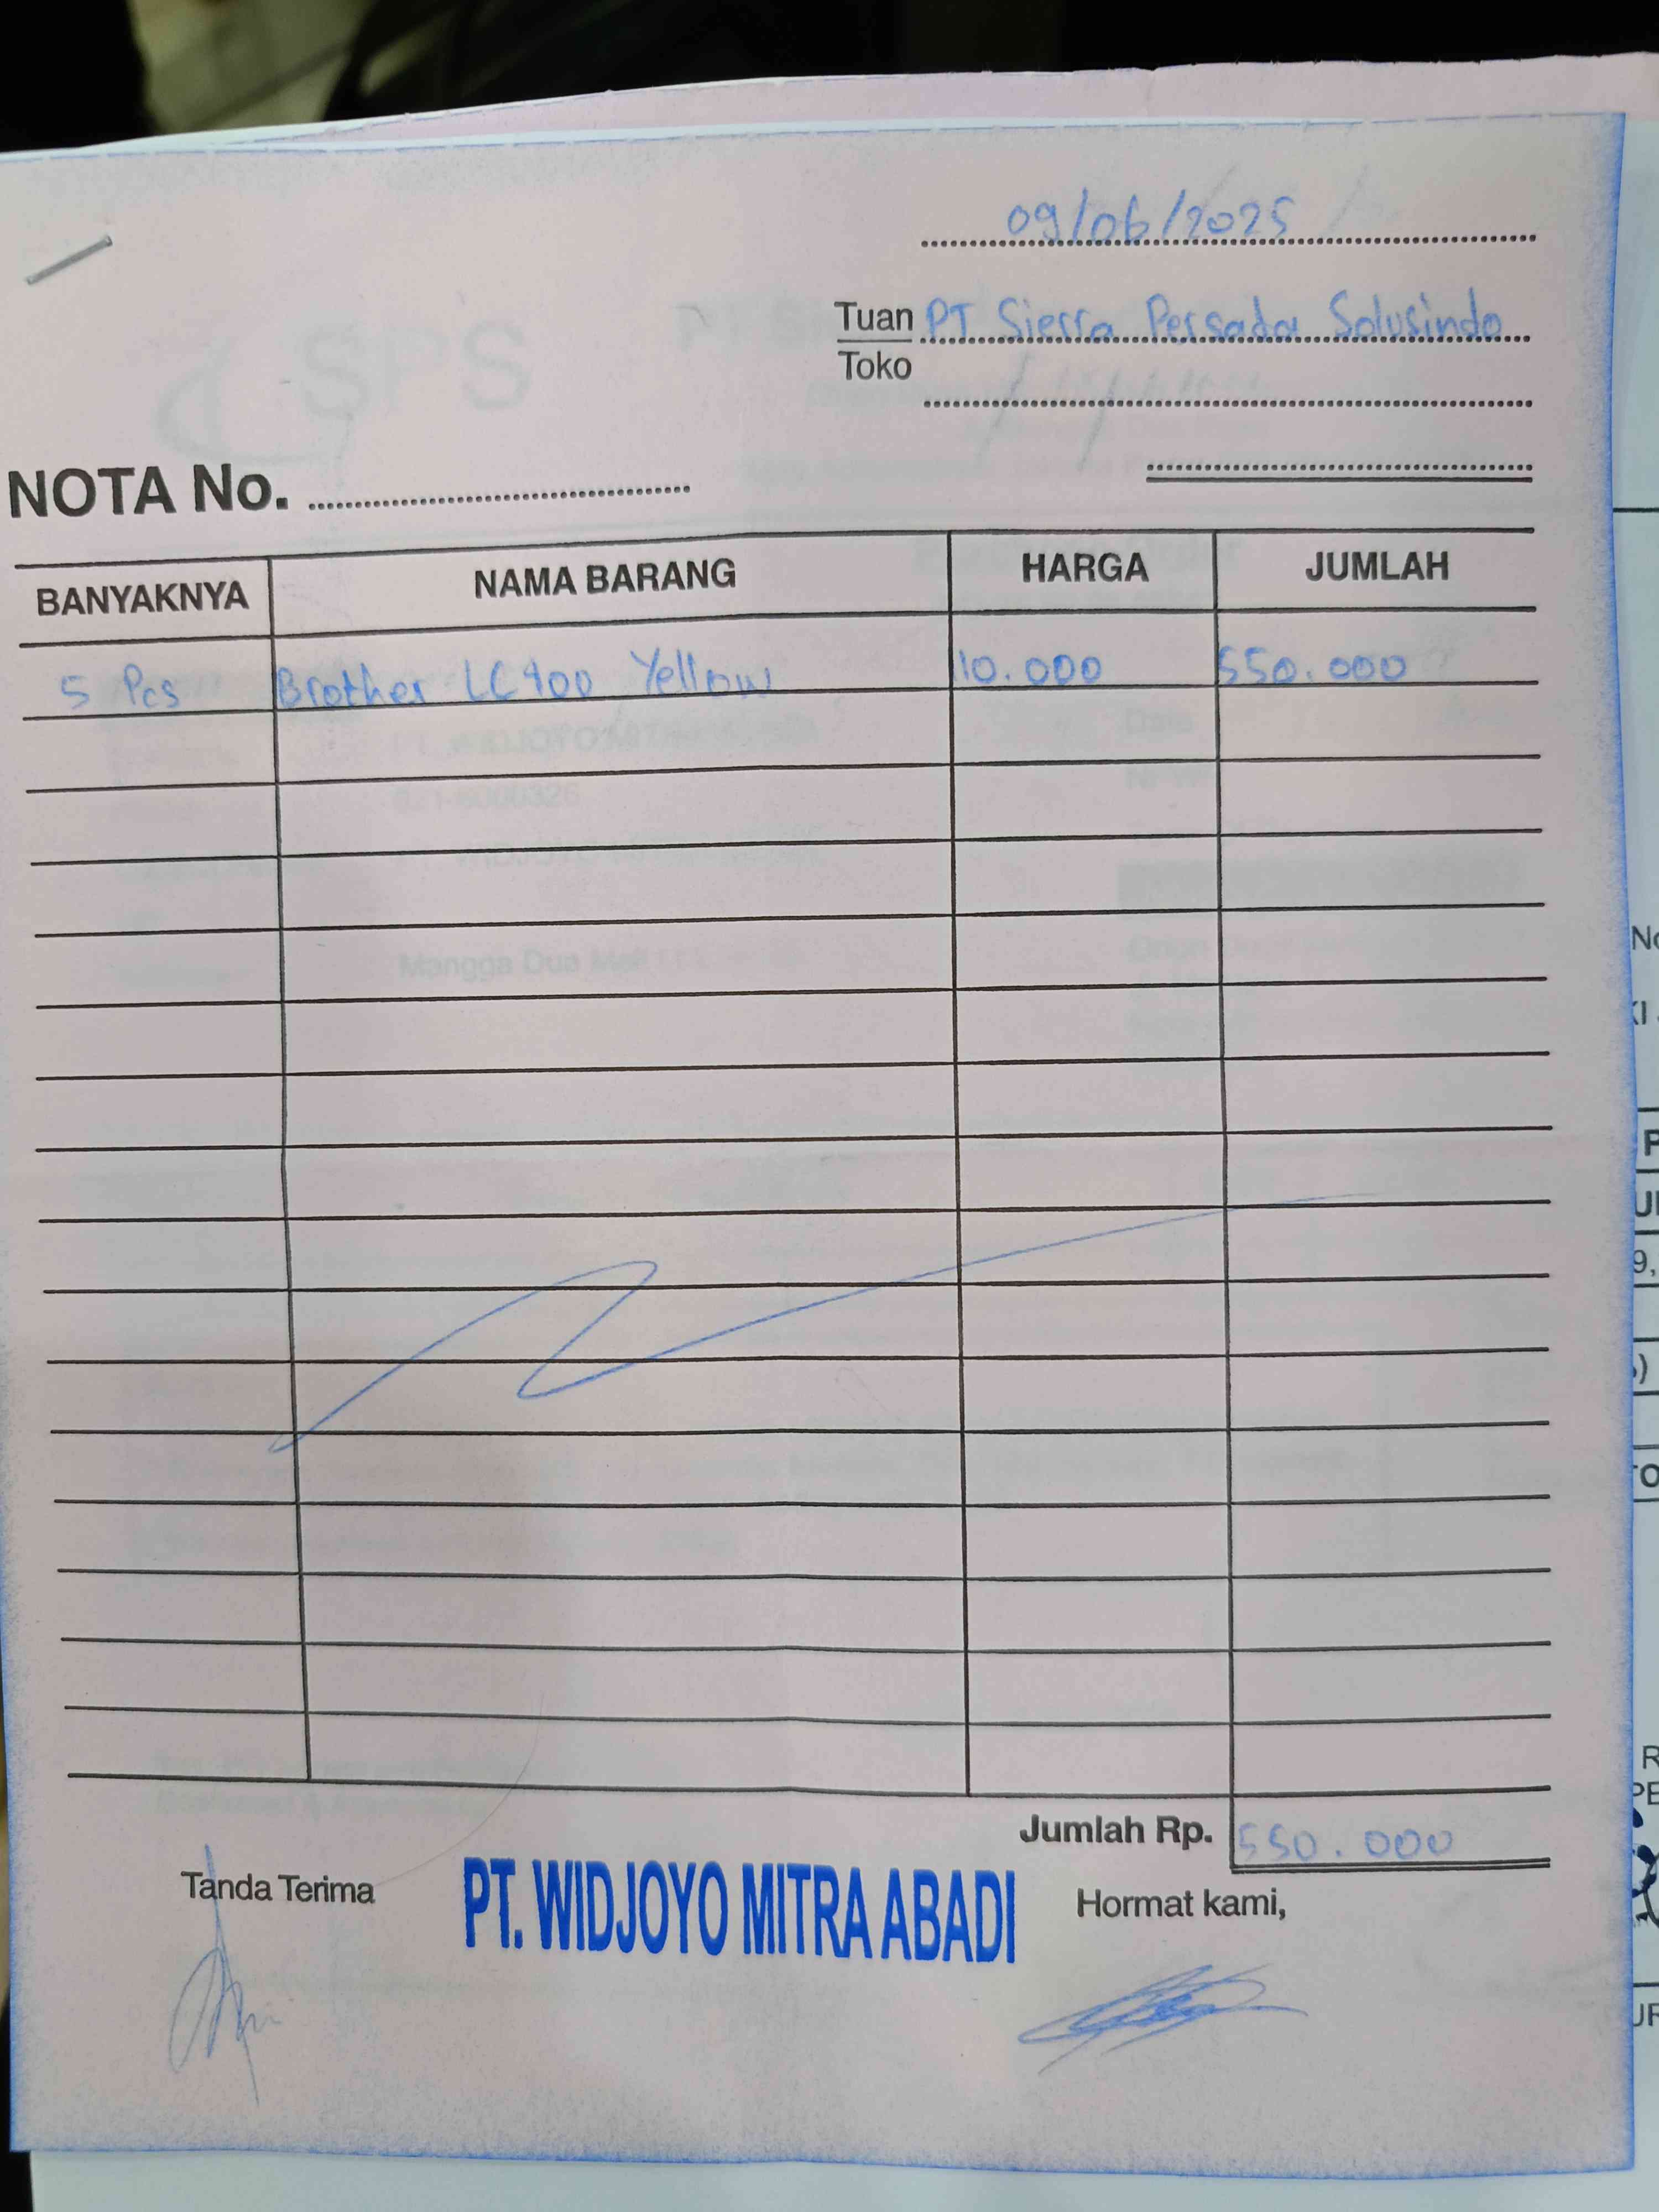 09/06/2025
Tuan PT Sierra Persada Solusindo
Toko
NOTA No.
BANYAKNYA NAMA BARANG HARGA JUMLAH
5 Pcs Brother LC400 Yellow 10.000 550.000
Jumlah Rp. 550.000
Tanda Terima PT. WIDJOYO MITRA ABADI Hormat kami,
SPS
PT. WIDJOYO MITRA
Mangga Dua Mall